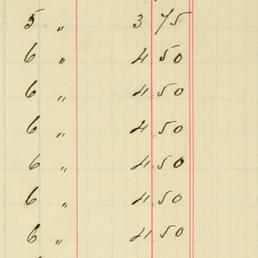 5 " 3 75
6 " 4 50
6 " 4 50
6 " 4 50
6 " 4 50
6 " 4 50
6 " 4 50